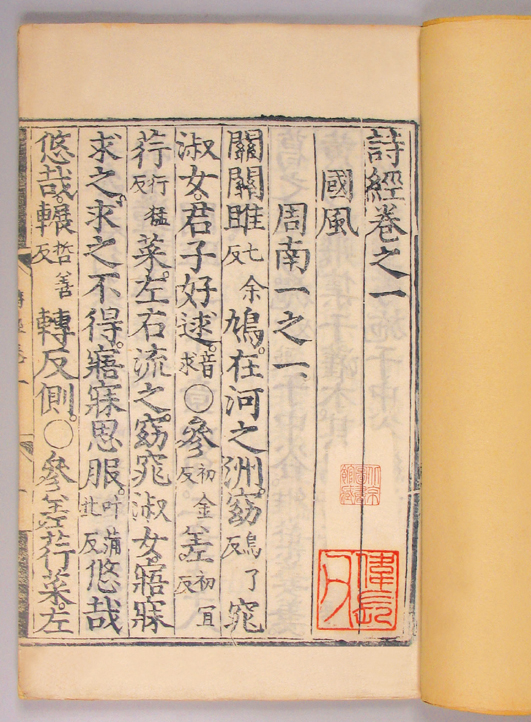 詩經卷之一
國風
周南一之一
關關雎七余反鳩。在河之洲。窈烏了反窕
淑女。君子好逑。音求○參初金反差初宜反
荇行猛反菜。左右流之。窈窕淑女。寤寐
求之。求之不得。寤寐思服。叶蒲北反悠哉
悠哉。輾哲善反轉反側。○參差荇菜。左